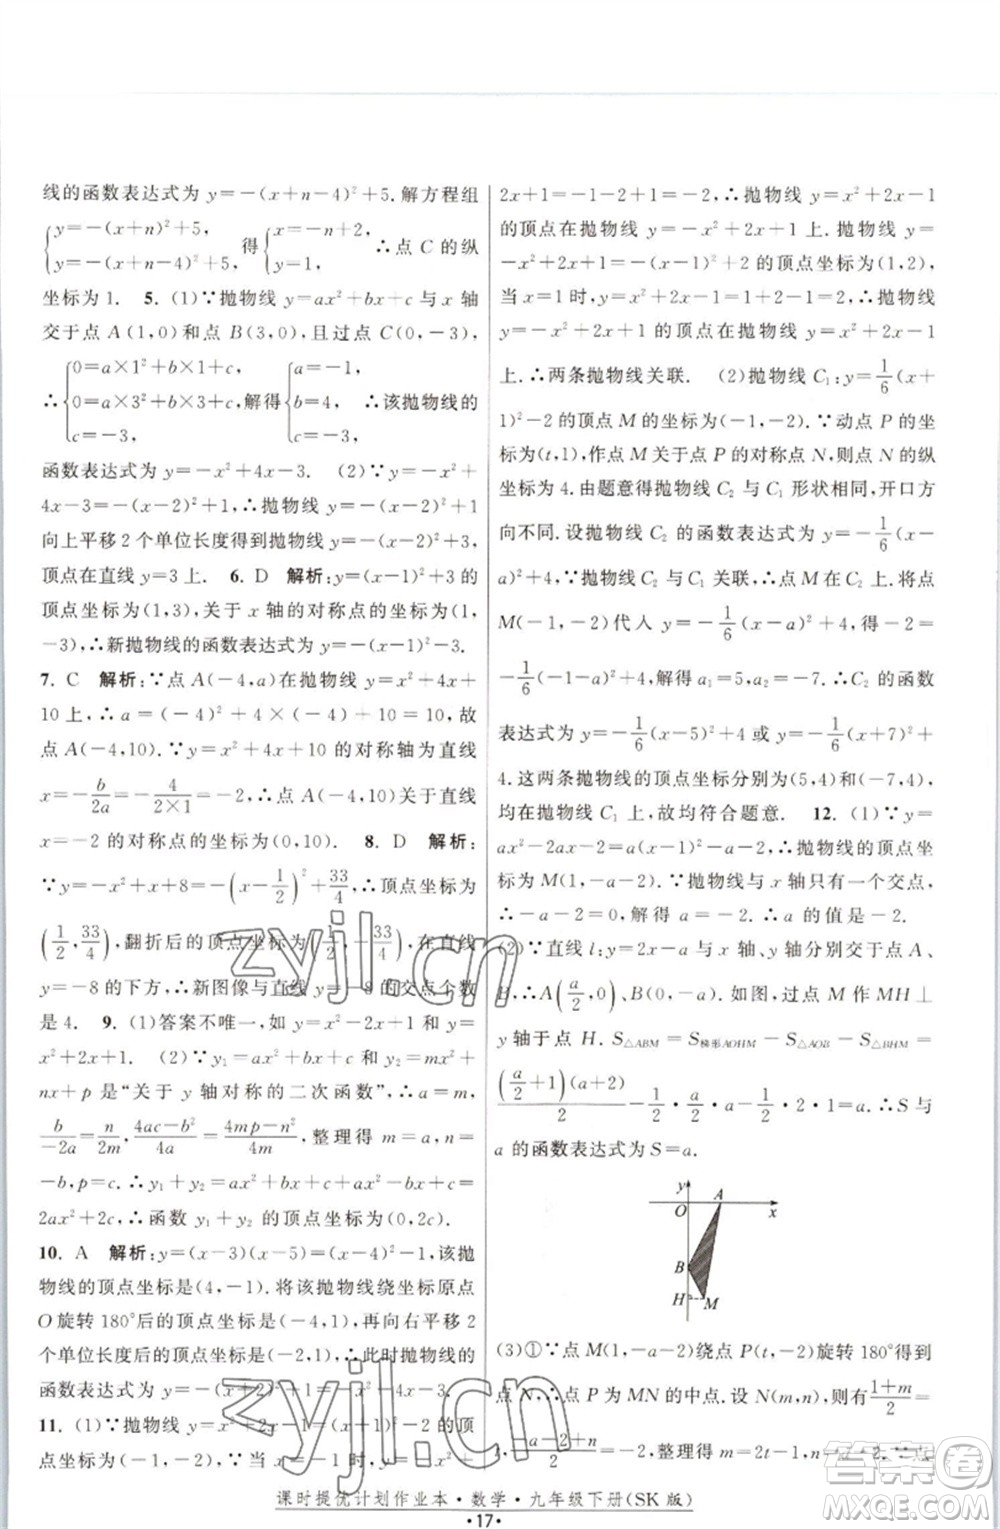 线的函数表达式为 y=-(x+n-4)²+5.解方程组
{y=-(x+n)²+5, y=-(x+n-4)²+5, 得{x=-n+2, y=1. ∴点 C 的纵
坐标为 1. 5. (1)∵抛物线 y=ax²+bx+c 与 x 轴
交于点 A(1,0)和点 B(3,0),且过点 C(0,-3),
∴{0=a×1²+b×1+c, 0=a×3²+b×3+c, c=-3, 解得{a=-1, b=4, c=-3. ∴该抛物线的
函数表达式为 y=-x²+4x-3. (2)∵y=-x²+
4x-3=-(x-2)²+1,∴抛物线 y=-(x-2)²+1
向上平移 2 个单位长度得到抛物线 y=-(x-2)²+3,
顶点在直线 y=3 上. 6. D 解析:∵y=(x-1)²+3 的
顶点坐标为(1,3),关于 x 轴的对称点的坐标为(1,
-3),∴新抛物线的函数表达式为 y=-(x-1)²-3.
7. C 解析:∵点 A(-4,a)在抛物线 y=x²+4x+
10 上,∴a=(-4)²+4×(-4)+10=10,故
点 A(-4,10).∵y=x²+4x+10 的对称轴为直线
x=-b/2a=-4/(2×1)=-2,∴点 A(-4,10)关于直线
x=-2 的对称点的坐标为(0,10). 8. D 解析:
∵y=-x²+x+8=-(x-1/2)²+33/4,∴顶点坐标为
(1/2,33/4),翻折后的顶点坐标为(1/2,-33/4),在直线
y=-8 的下方,∴新图像与直线 y=-8 的交点个数
是 4. 9. (1)答案不唯一,如 y=x²-2x+1 和 y=
x²+2x+1. (2)∵y₁=ax²+bx+c 和 y₂=mx²+
nx+p 是“关于 y 轴对称的二次函数”,∴a=m,
b/-2a=n/2m,(4ac-b²)/4a=(4mp-n²)/4m,整理得 m=a,n=
-b,p=c.∴y₁+y₂=ax²+bx+c+ax²-bx+c=
2ax²+2c,∴函数 y₁+y₂ 的顶点坐标为(0,2c).
10. A 解析:y=(x-3)(x-5)=(x-4)²-1,该抛
物线的顶点坐标是(4,-1).将该抛物线绕坐标原点
O 旋转 180°后的顶点坐标是(-4,1),再向右平移 2
个单位长度后的顶点坐标是(-2,1),∴此时抛物线的
函数表达式为 y=-(x+2)²+1=-x²-4x-3.
11. (1)∵抛物线 y=x²+2x-1=(x+1)²-2 的顶
点坐标为(-1,-2),∴当 x=-1 时,y=-x²+
2x+1=-1-2+1=-2,∴抛物线 y=x²+2x-1
的顶点在抛物线 y=-x²+2x+1 上.∵抛物线 y=
-x²+2x+1=-(x-1)²+2 的顶点坐标为(1,2),
当 x=1 时,y=x²+2x-1=1+2-1=2,∴抛物线
y=-x²+2x+1 的顶点在抛物线 y=x²+2x-1
上.∴两条抛物线关联. (2)抛物线 C₁:y=1/6(x+
1)²-2 的顶点 M 的坐标为(-1,-2).∵动点 P 的坐
标为(t,1),作点 M 关于点 P 的对称点 N,则点 N 的纵
坐标为 4.由题意得抛物线 C₂ 与 C₁ 形状相同,开口方
向不同.设抛物线 C₂ 的函数表达式为 y=-1/6(x-
a)²+4,∵抛物线 C₂ 与 C₁ 关联,∴点 M 在 C₂ 上.将点
M(-1,-2)代入 y=-1/6(x-a)²+4,得-2=
-1/6(-1-a)²+4,解得 a₁=5,a₂=-7.∴C₂ 的函数
表达式为 y=-1/6(x-5)²+4 或 y=-1/6(x+7)²+
4.这两条抛物线的顶点坐标分别为(5,4)和(-7,4),
均在抛物线 C₁ 上,故均符合题意. 12. (1)∵y=
ax²-2ax-2=a(x-1)²-a-2,∴抛物线的顶点坐
标为 M(1,-a-2).∵抛物线与 x 轴只有一个交点,
∴-a-2=0,解得 a=-2.∴a 的值是-2.
(2)∵直线 l:y=2x-a 与 x 轴、y 轴分别交于点 A、
B,∴A(a/2,0)、B(0,-a).如图,过点 M 作 MH⊥
y 轴于点 H.S△ABM=S梯形AOHM-S△AOB-S△BHM=
(a/2+1)(a+2)/2-1/2·a/2·a-1/2·2·1=a.∴S 与
a 的函数表达式为 S=a.
y
O
A
x
B
H
M
(3)①∵点 M(1,-a-2)绕点 P(t,-2)旋转 180°得到
点 N,∴点 P 为 MN 的中点.设 N(m,n),则(1+m)/2=
t,(-a-2+n)/2=-2,整理得 m=2t-1,n=a-2.∵点
课时提优计划作业本·数学·九年级下册(SK 版)
·17·
zyjl.cn
zyjl.cn
答案圈
MXQE.COM